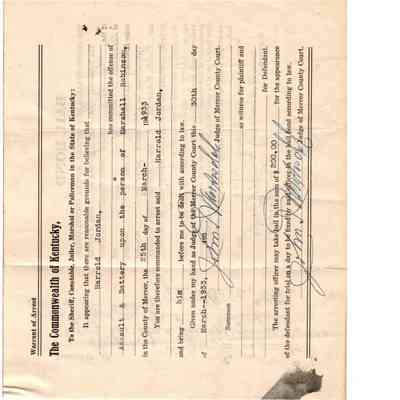 Warrant of Arrest
The Commonwealth of Kentucky,
To the Sheriff, Constable, Jailer, Marshal or Policemen in the State of Kentucky:
It appearing that there are reasonable grounds for believing that
Harrold Jordan,
has committed the offense of
Assault & Battery upon the person of Marshall Robinson,
in the County of Mercer, the 25th day of March- 1953
You are therefore commanded to arrest said Harrold Jordan,
and bring him before me to be dealt with according to law.
Given under my hand as Judge of the Mercer County Court this 30th day
of March--1953,
Judge of Mercer County Court.
Summon
as witness for plaintiff and
for Defendant.
The arresting officer may take bail in the sum of $ 200.00 for the appearance
of the defendant for trial on a day to be fixed by said officer in the bond according to law.
Judge of Mercer County Court.